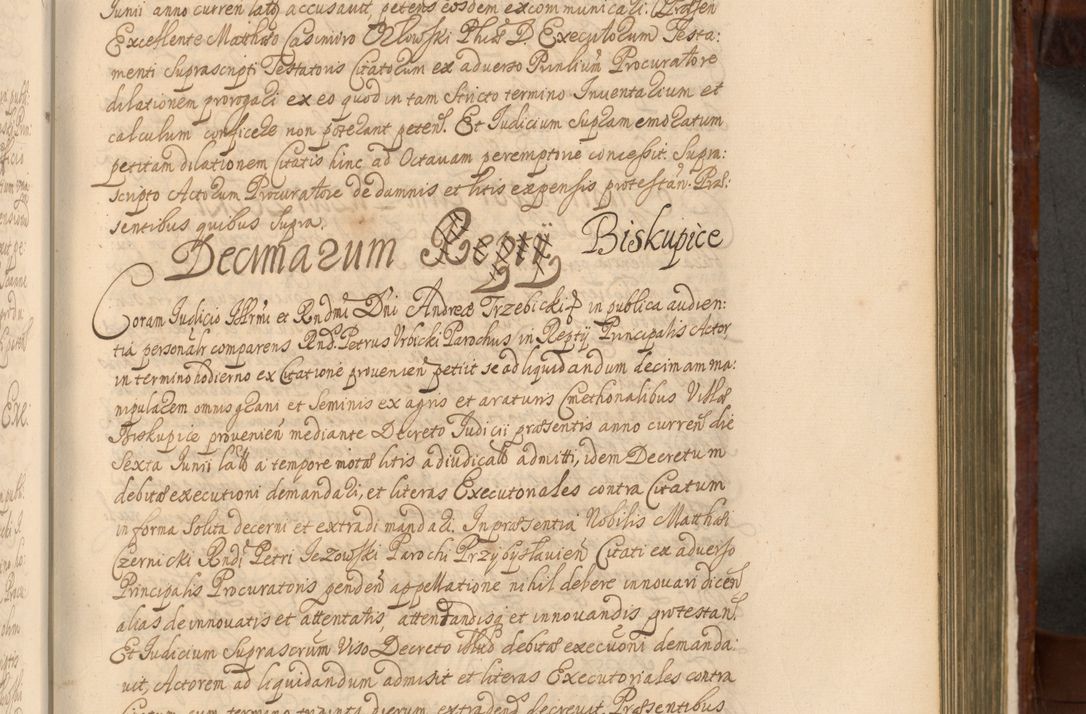 Junii anno curren latis accusavit, petens eosdem excommunicari. Præsen
Excellente Matthæo Casimiro Orłowski Phiæ D. Executorum Testa:
menti Suprascripti Testatoris Citatorum ex adverso Prinlium Procuratore
dilationem prorogari ex eo quod in tam stricto termino Inventarium et
calculum conficere non poterant peten. Et Judicium Supram emoratum
petitam dilationem Citatis hinc ad Octavam peremptorie concessit. Supra:
scripto Actorum Procuratore de damnis et litis expensis protestan. Præ:
sentibus quibus supra.
Decimarum Reptÿ Biskupice
Coram Judicio Illrmi et Rndmi Dni Andreæ Trzebicki in publica audien:
tia personalr comparens Rnd. Petrus Vrbicki Parochus in Reptÿ Principalis Actor,
in termino hodierno ex Citatione provenien petiit se ad liquidandum decimam ma:
nipularem omnis grani et seminis ex agris et araturis Cmethonalibus Villæ
Biskupice provenien mediante Decreto Judicii præsentis anno curren die
Sexta Junii lato a tempore motæ litis adiudicatā admitti, idem Decretum
debitæ executioni demandari, et literas Executoriales contra Citatum
in forma solita decerni et extradi mandari. In præsentia Nobilis Matthæi
Czernicki Rndi Petri Jezowski Parochi Przybysłavien Citati ex adverso
Principalis Procuratoris penden appellatione nihil debere innovari dicen
alias de innovatis et attentatis, attentandisq et innovandis protestan.
Et Judicium Suprascrum Viso Decreto illud debitæ execuōni demanda:
vit, Actorem ad liquidandum admisit et literas Executoriales contra
Citatum cum termino triginta dierum extradend decrevit Præsentibus